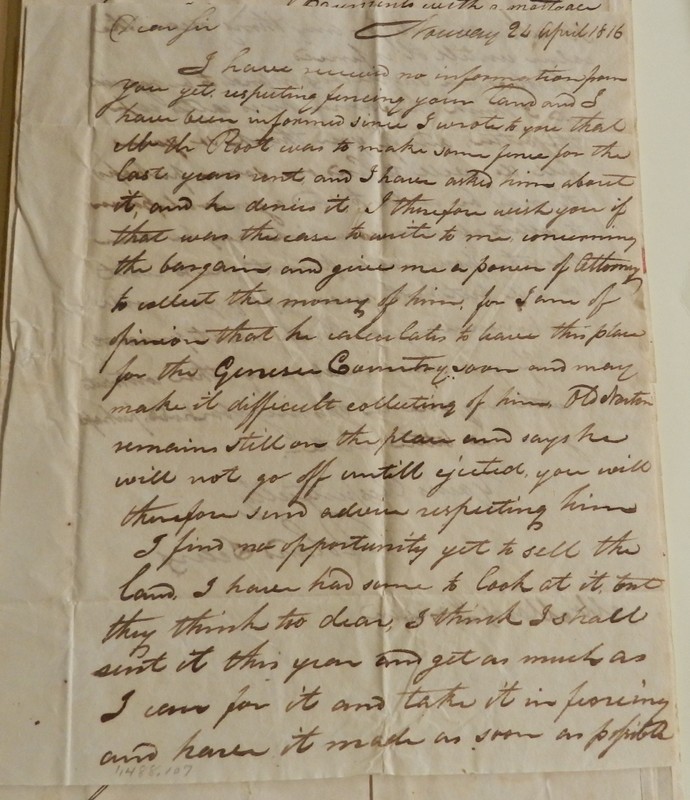 Documents with a
Dear Sir Norway 24 April 1816
I have received no information from
you yet, respecting fencing your Land and I
have been informed since I wrote to you that
Mr Root was to make some fence for the
last years rent and I have asked him about
it, and he denies it I therefore wish you if
that was the case to write to me concerning
the bargain and give me a power of Attorney
to collect the money of him, for I am of
opinion that he calculates to leave this place
for the Genesee Country soon and may
make it difficult collecting of him, Old
remains still on the place and says he
will not go off untill ejected, you will
therefore send advice respecting him
I find no opportunity yet to sell the
land, I have had some to look at it, but
they think too dear, I think I shall
rent it this year and get as much as
I can for it and take it in fencing
and have it made as soon as possible
1488.107